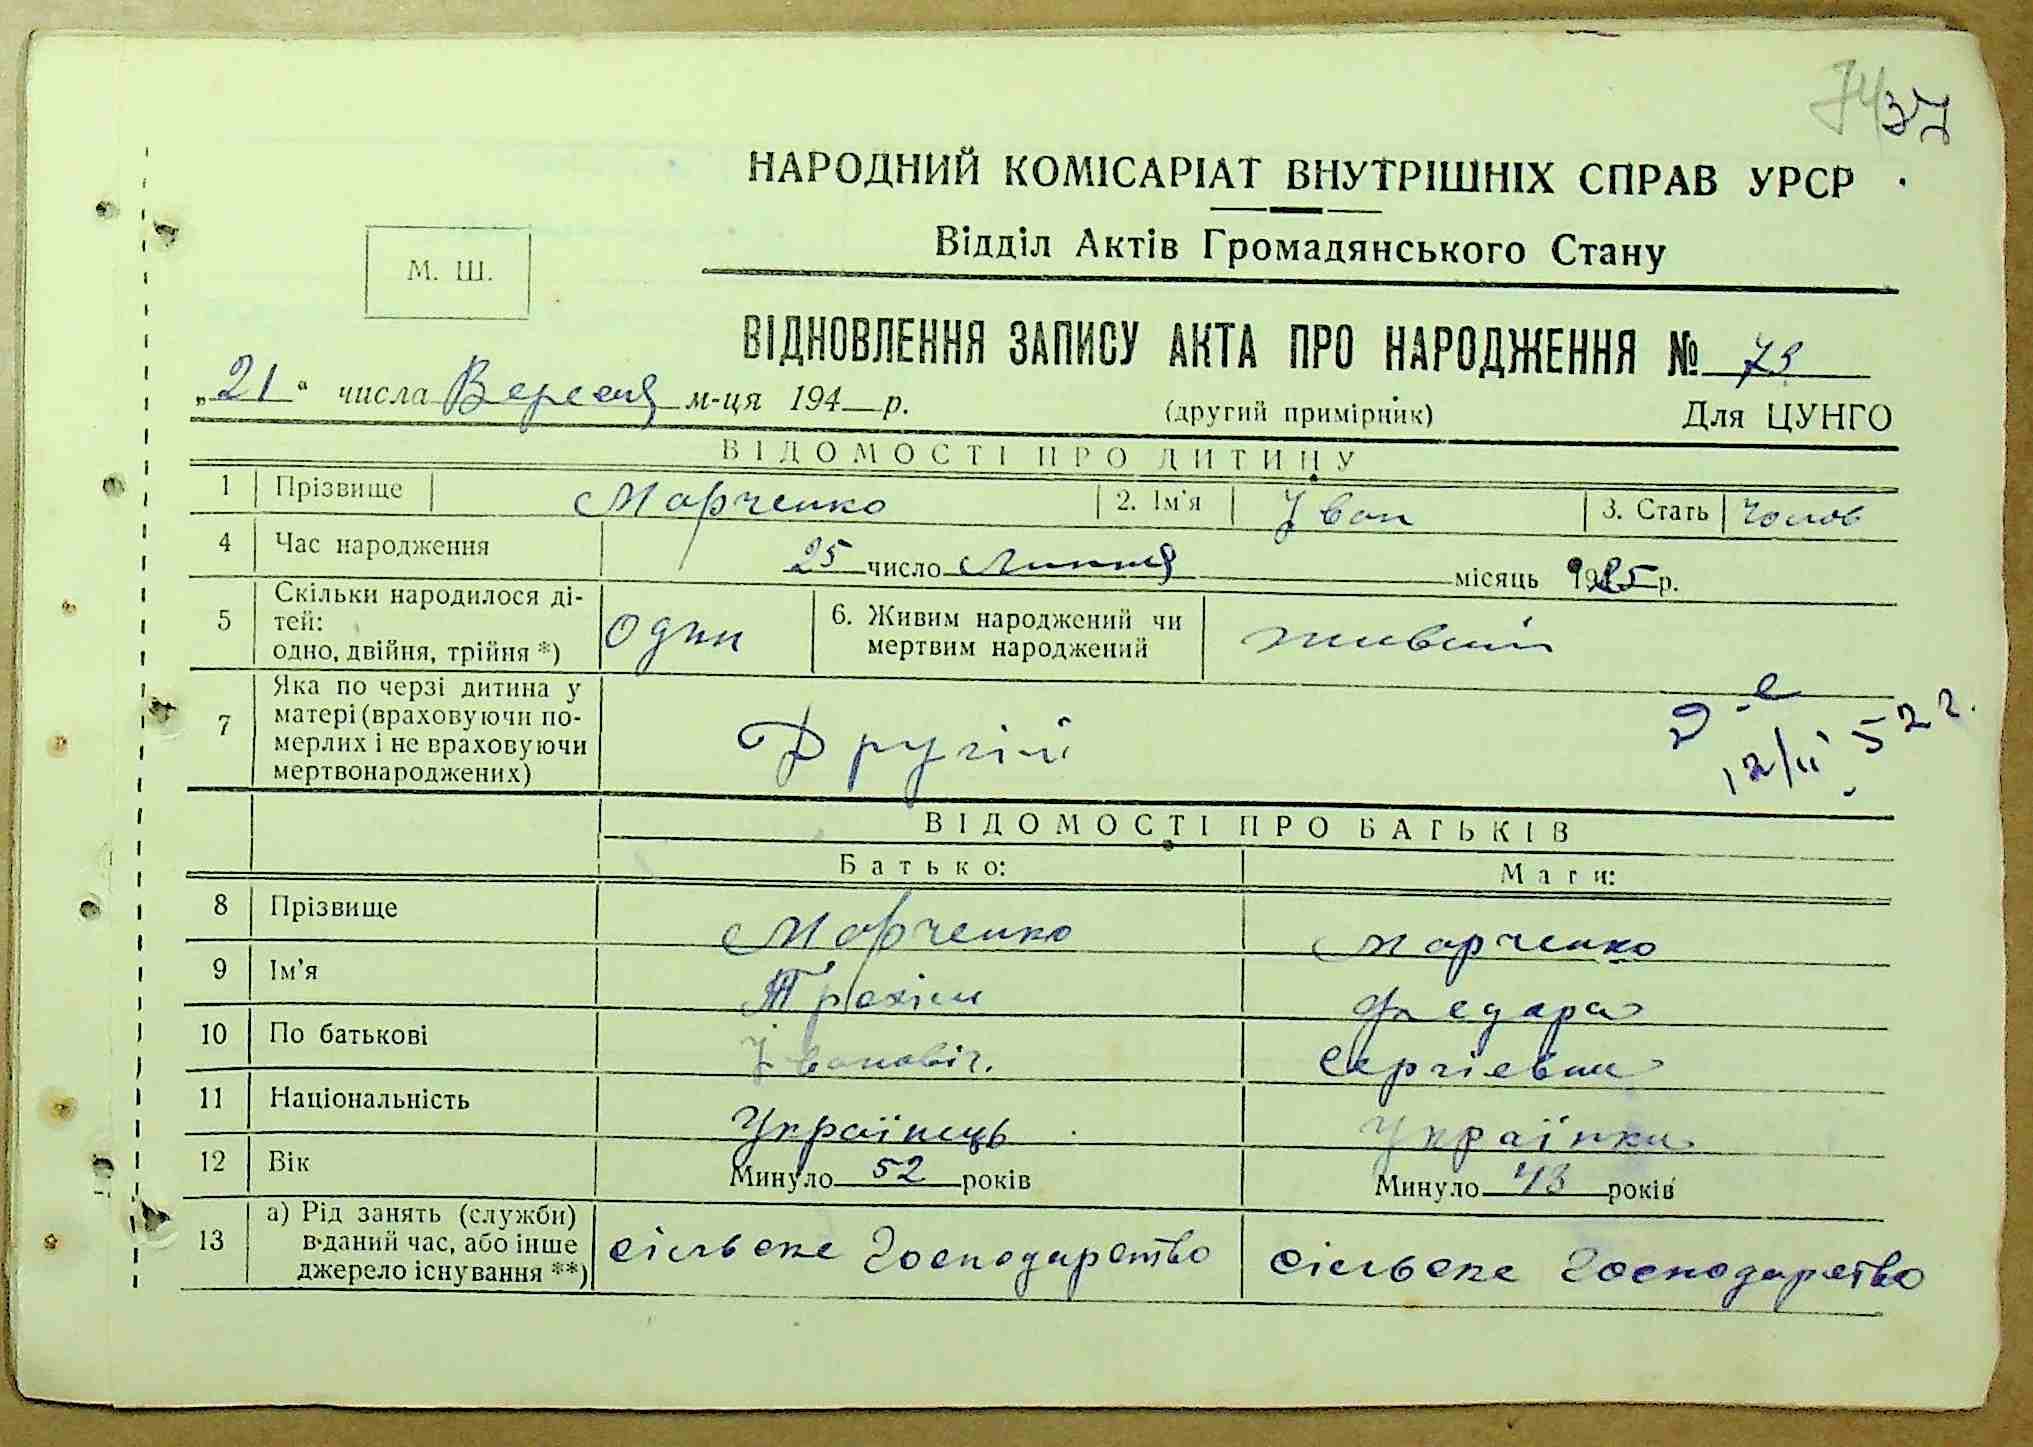 74 37
НАРОДНИЙ КОМІСАРІАТ ВНУТРІШНІХ СПРАВ УРСР
Відділ Актів Громадянського Стану
М. Ш.
ВІДНОВЛЕННЯ ЗАПИСУ АКТА ПРО НАРОДЖЕННЯ № 73
„21" числа Вересня м-ця 194 р. (другий примірник) Для ЦУНГО
ВІДОМОСТІ ПРО ДИТИНУ
1 Прізвище Марченко 2. Ім'я Іван 3. Стать Чолов
4 Час народження 25 число Липня місяць 1925 р.
5 Скільки народилося ді-
тей:
одно, двійня, трійня *) Один 6. Живим народжений чи
мертвим народжений живий
7 Яка по черзі дитина у
матері (враховуючи по-
мерлих і не враховуючи
мертвонароджених) Другий
2-е
12/II 52 г.
ВІДОМОСТІ ПРО БАТЬКІВ
Батько: Мати:
8 Прізвище Марченко Марченко
9 Ім'я Трохим Федора
10 По батькові Івановіч. Сергієвна
11 Національність Українець Українка
12 Вік Минуло 52 років Минуло 43 років
13 а) Рід занять (служби)
в даний час, або інше
джерело існування **) сільське господарство сільське господарство